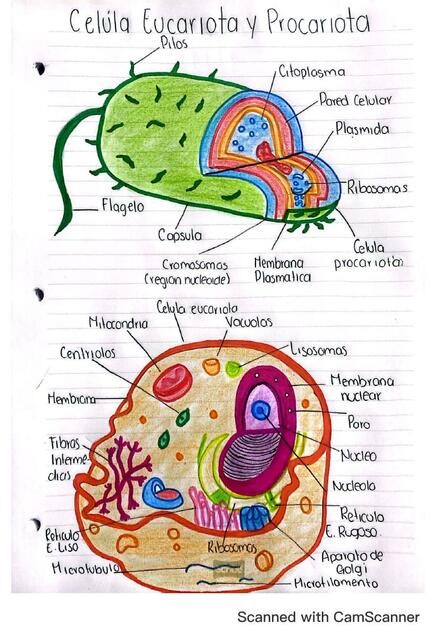 Celúla Eucariota y Procariota
Pilos
Citoplasma
Pared Celular
Plasmida
Ribosomas
Flagelo
Capsula
Celula
procariota
Cromosomas
(region nucleoide)
Membrana
Plasmatica
Celula eucariota
Mitocondria
Vacuolos
Centriolos
Lisosomas
Membrana
Membrana
nuclear
Poro
Fibras
Interme-
dias
Nucleo
Nucleolo
Reticulo
E. Rugoso.
Reticulo
E. Liso
Ribosomas
Aparato de
Golgi
Microtubulo
Microfilamento
Scanned with CamScanner